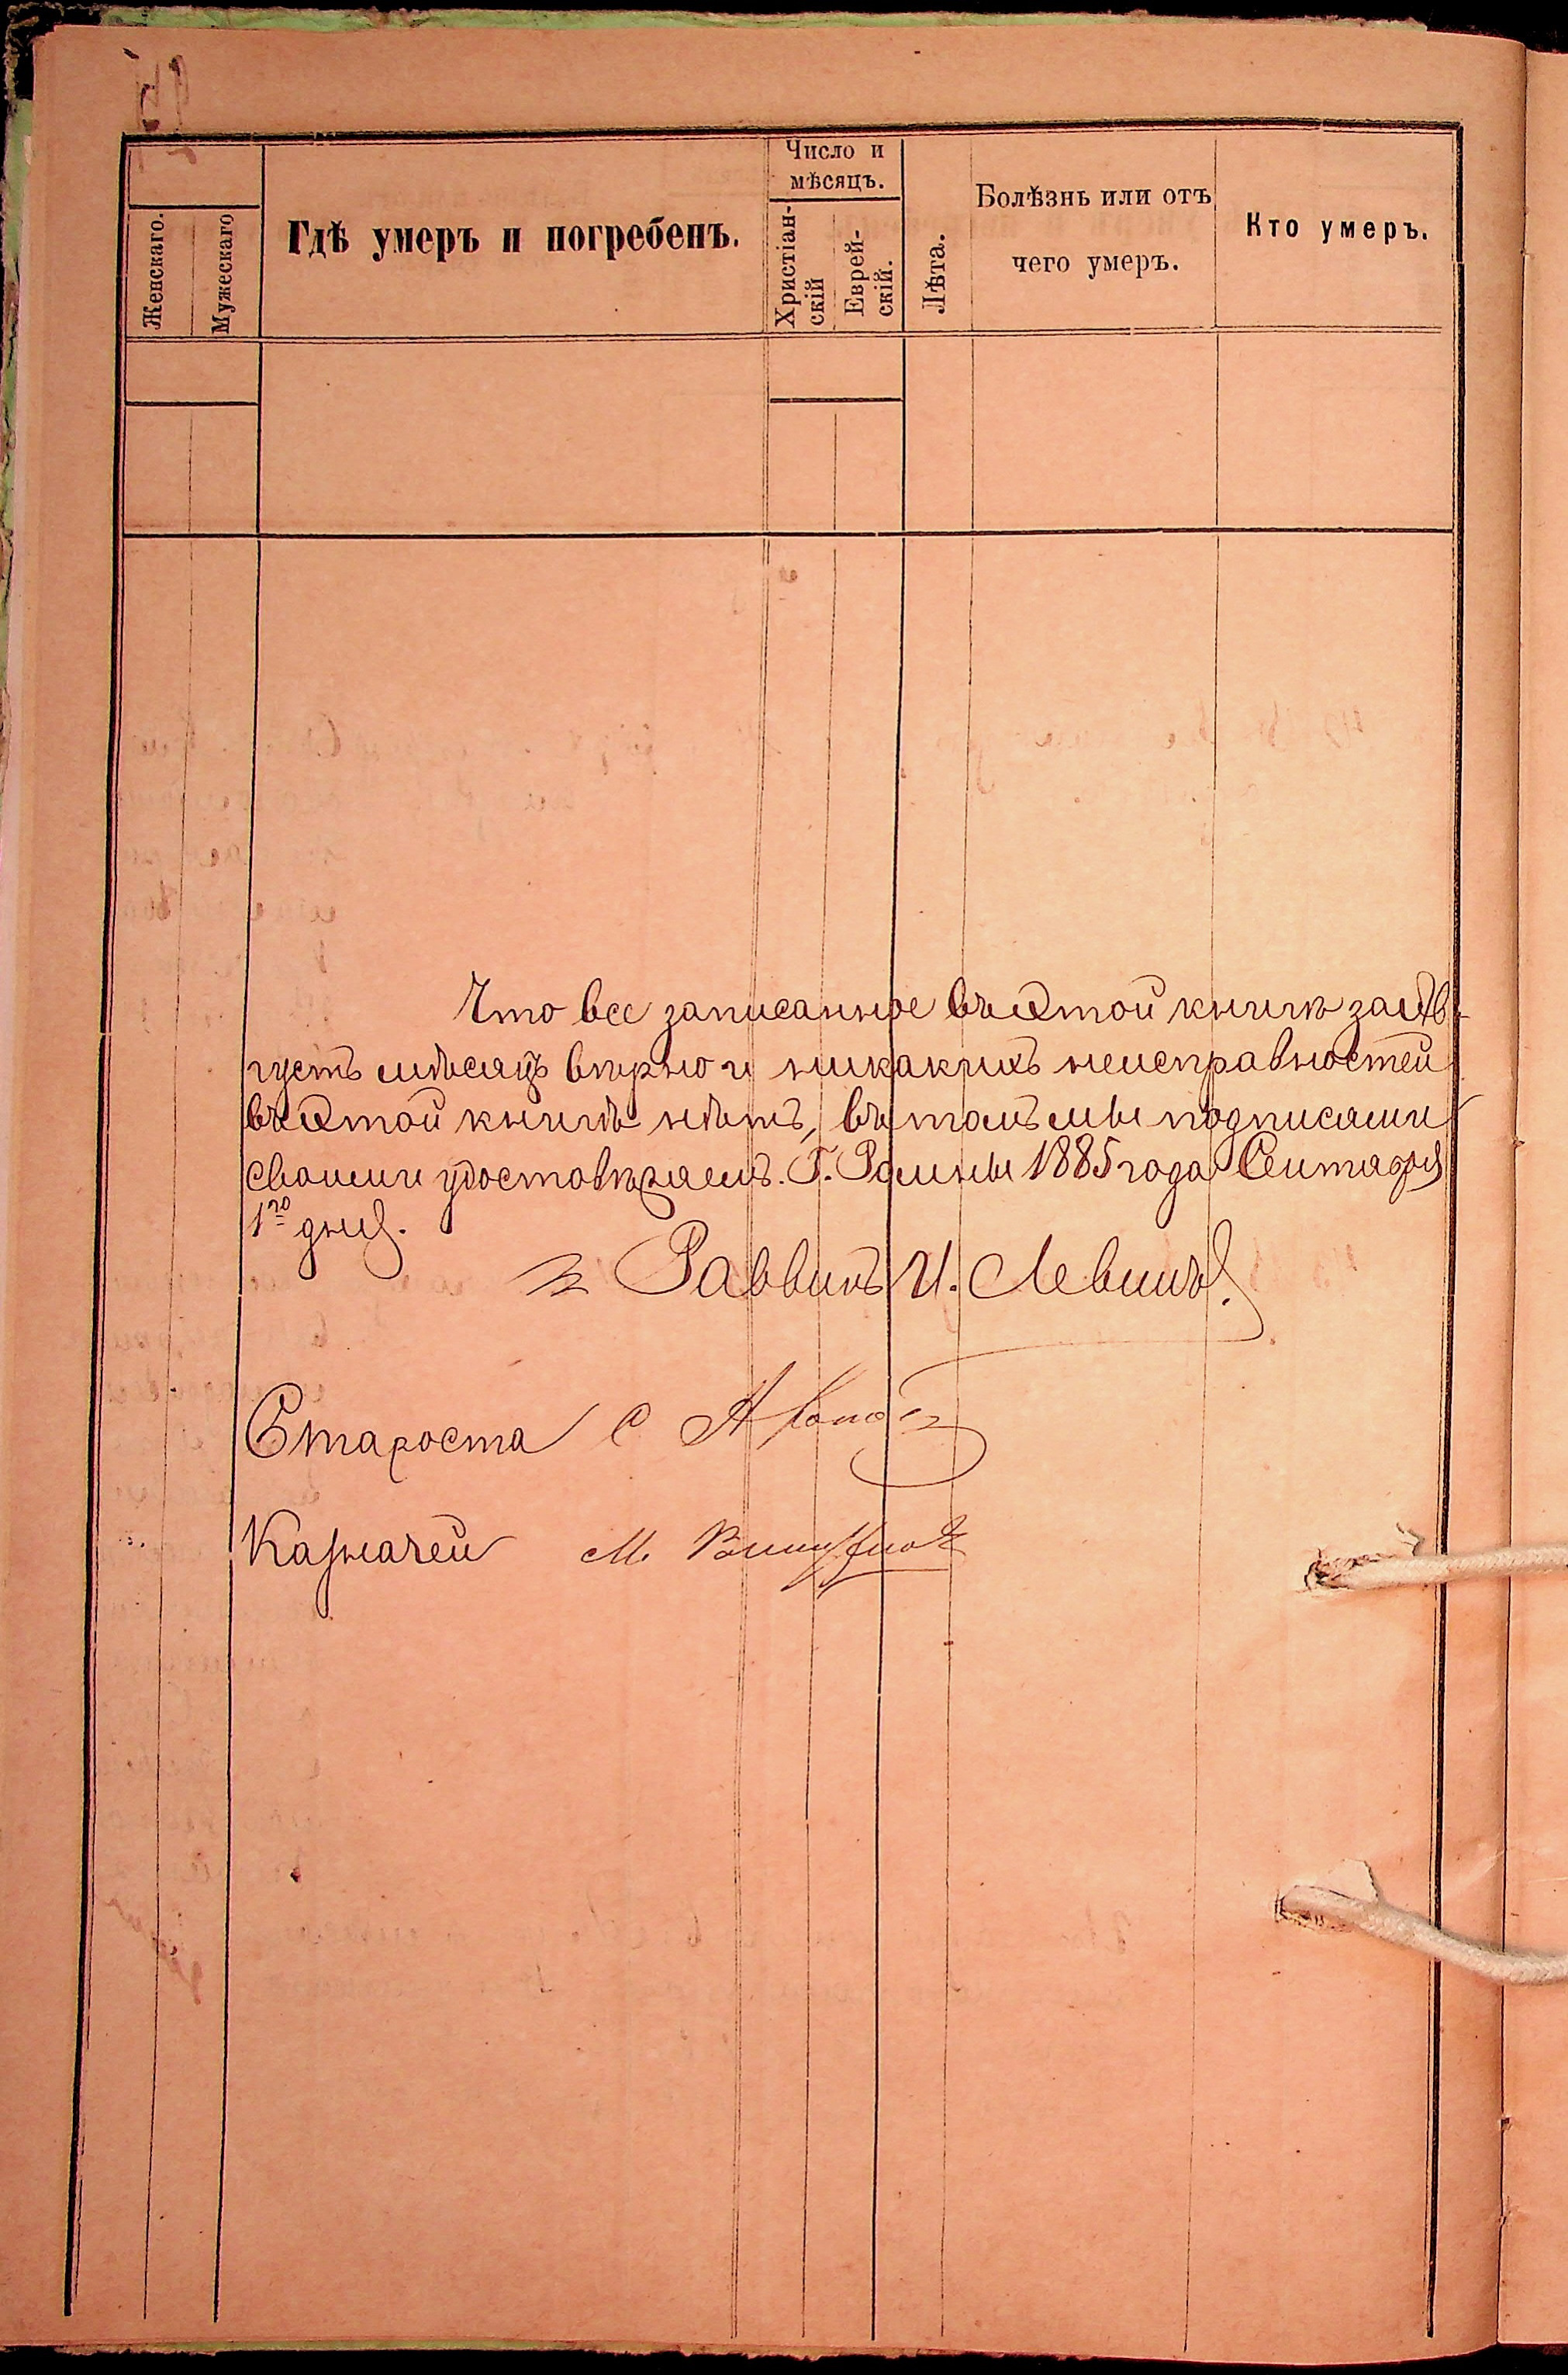 Число и
мѣсяцъ.
Женскаго.
Мужескаго
Гдѣ умеръ и погребенъ.
Христіан-
скій
Еврей-
скій.
Лѣта.
Болѣзнь или отъ
чего умеръ.
Кто умеръ.
Что все записанное въ этой книгѣ за Ав-
густъ мѣсяцъ вѣрно и никакихъ неисправностей
въ этой книгѣ нѣтъ, въ томъ мы подписями
своими удостовѣряемъ. Г. Ромны 1885 года Сентября
1го дня.
Раввинъ И. Левинъ.
Староста С
Казначей М.